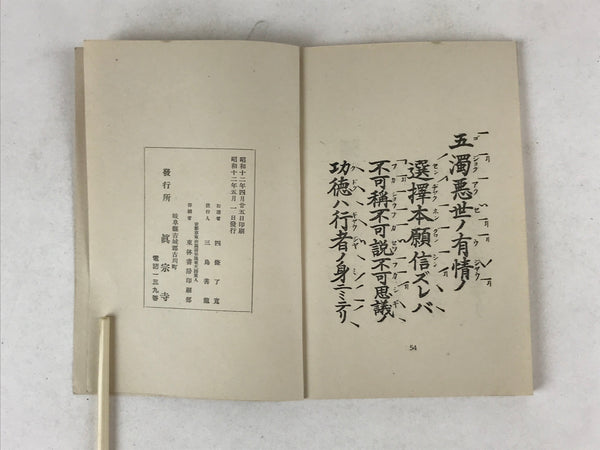 五濁悪世ノ有情ノ
選擇本願信ズレバ
不可稱不可説不可思議ノ
功徳ハ行者ノ身ニミテリ
54
昭和十二年四月廿五日印刷
昭和十二年五月一日發行
四衢了寛
三島善龍
東林書房印刷部
發行所 眞宗寺
岐阜縣吉城郡古川町
電話一三九番